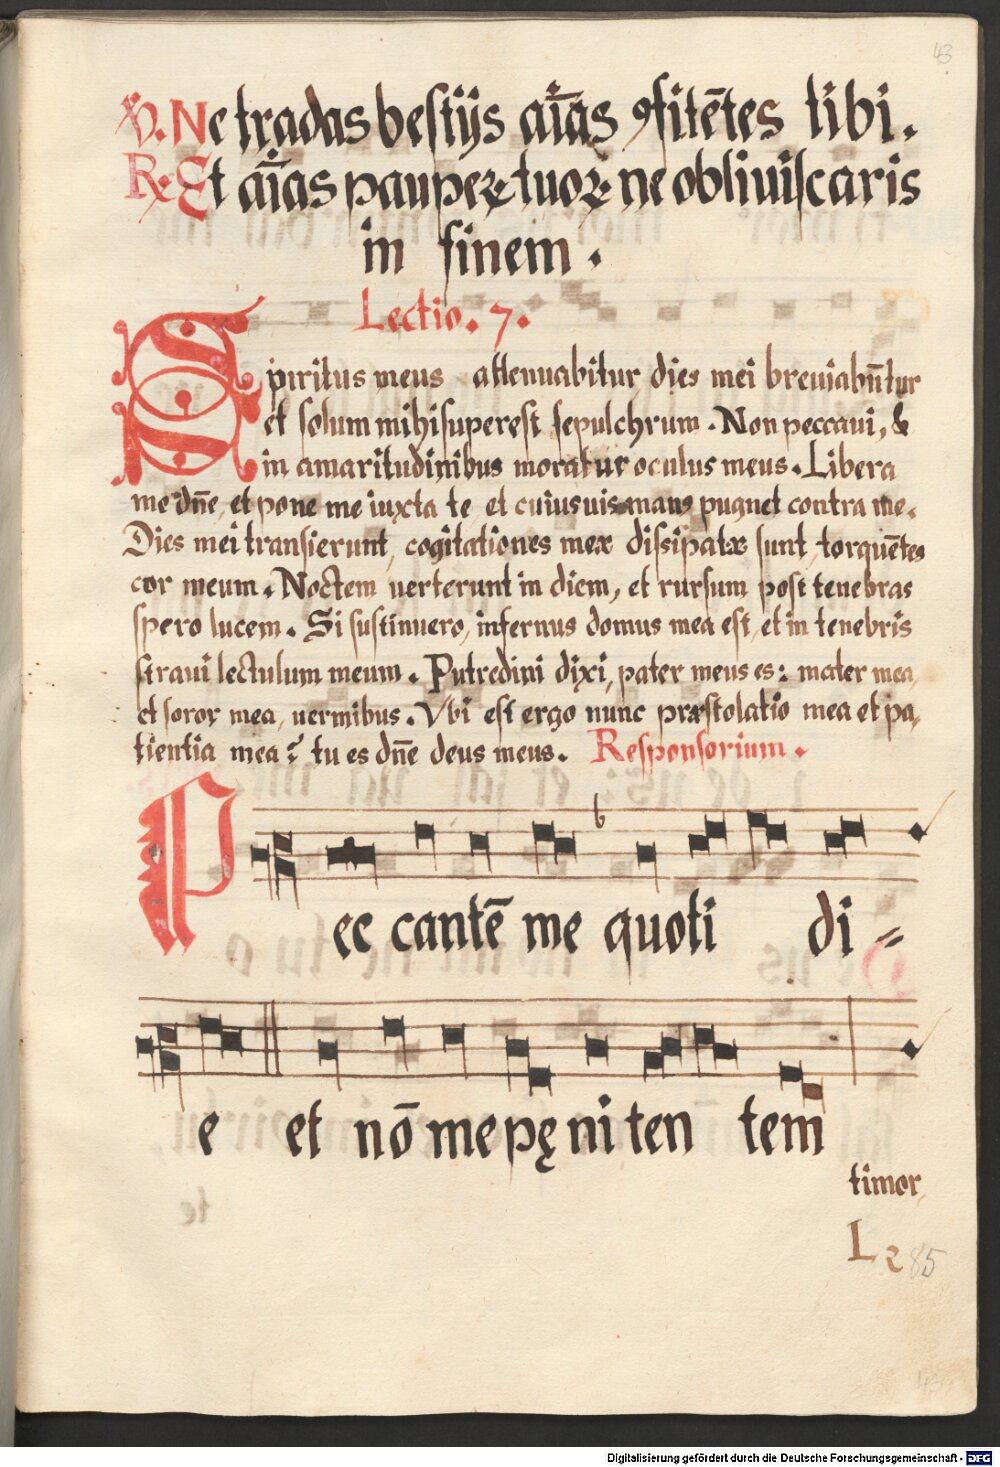 43
V. Ne tradas bestijs aīas ꝯfitētes tibi.
R. Et aīas pauperꝝ tuoꝝ ne obliuiscaris
in finem.
Lectio. 7.
Spiritus meus attenuabitur dies mei breuiabūtur
et solum mihi superest sepulchrum. Non peccaui, &
in amaritudinibus moratur oculus meus. Libera
me dn̄e, et pone me iuxta te et cuiusuis manus pugnet contra me.
Dies mei transierunt, cogitationes meæ dissipatæ sunt, torquētes
cor meum. Noctem uerterunt in diem, et rursum post tenebras
spero lucem. Si sustinuero, infernus domus mea est, et in tenebris
straui lectulum meum. Putredini dixi, pater meus es: mater mea,
et soror mea, uermibus. Vbi est ergo nunc præstolatio mea et pa,
tientia mea? tu es dn̄e deus meus. Responsorium.
b
Pec cantē me quoti di =
e et nō me pę ni ten tem
timor,
L 2 85
Digitalisierung gefördert durch die Deutsche Forschungsgemeinschaft - DFG